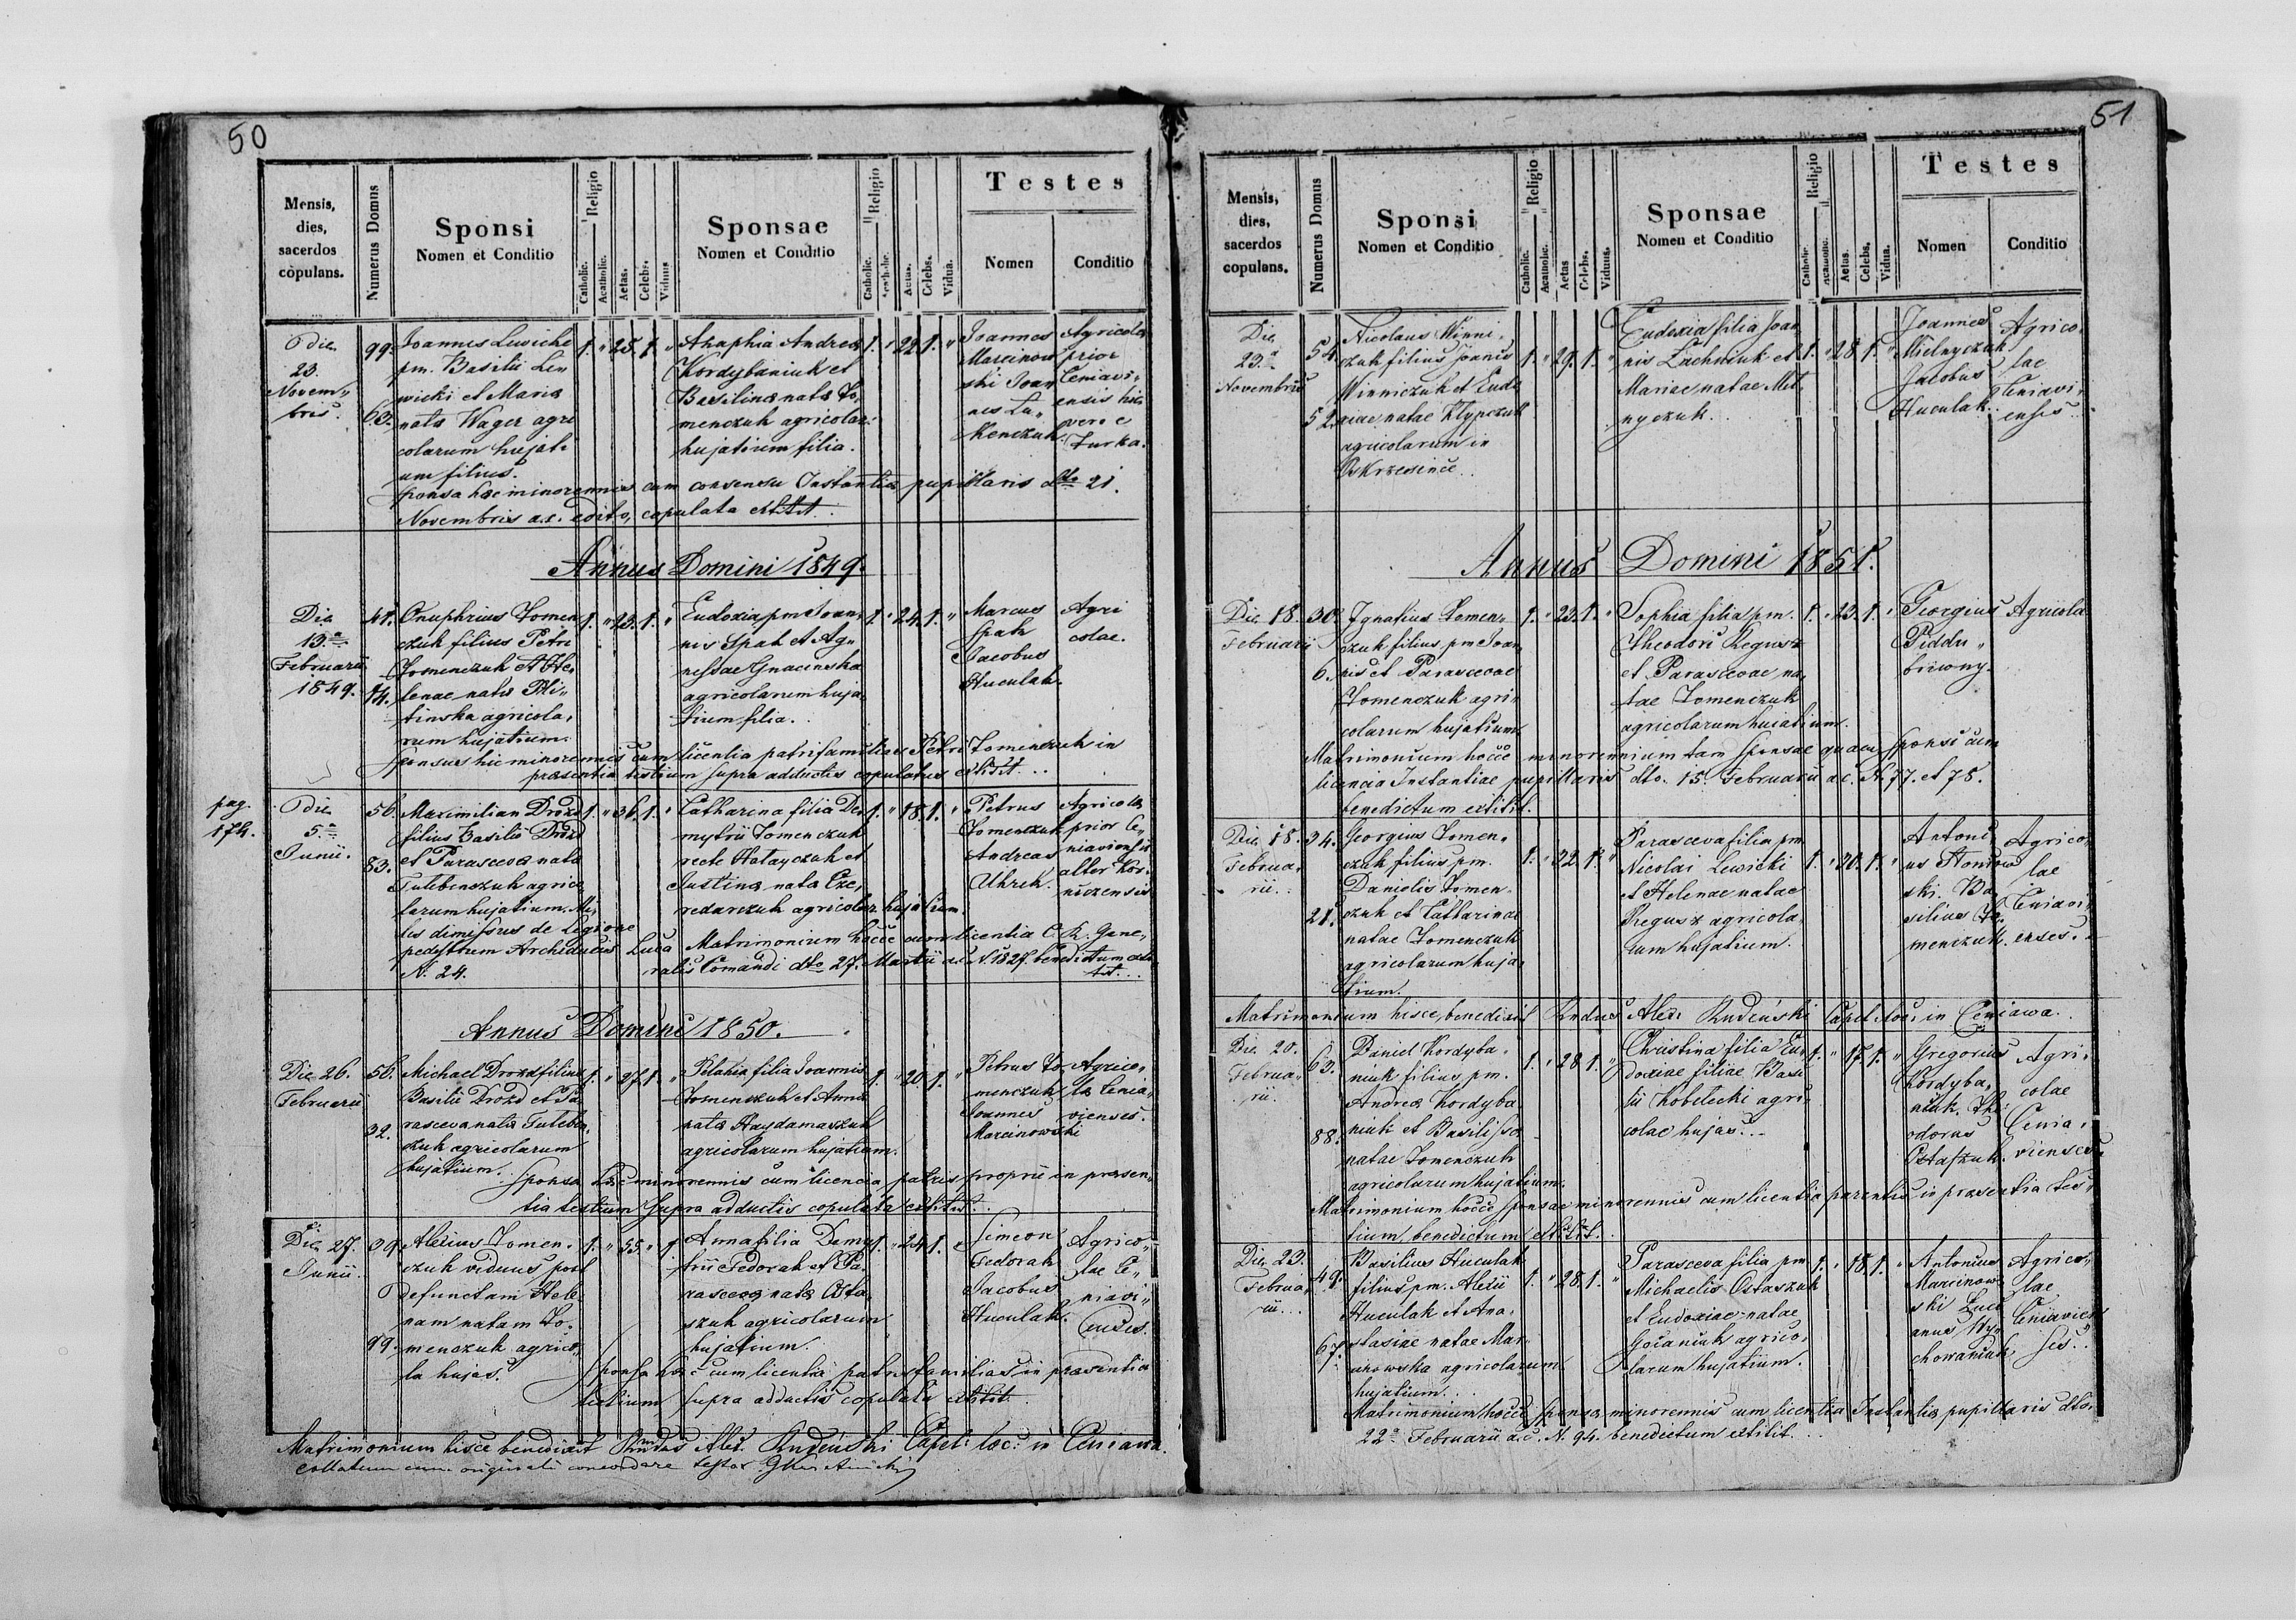 50
Mensis, dies, sacerdos copulans.
Numerus Domus
Sponsi
Nomen et Conditio
Religio
Catholic.
Acatholic.
Aetas.
Celebs.
Viduus
Sponsae
Nomen et Conditio
Religio
Catholic.
Acatholic.
Aetas.
Celebs.
Vidua.
Testes
Nomen
Conditio
Die
23.
Novem„
bris.
99.
63.
Joannes Lewicki
pm. Basilii Le„
wicki et Maria
nata Wager agri
colarum hujat„
um filius.
1. „ 25. 1. „
Ahaphia Andrea
Kordybaniuk et
Basilina nata To„
menczuk agricolar:
hujatium filia.
1. „ 22. 1. „
Joannes
Marcinow
ski Joan
nes Lu„
kenczuk.
Agricola
prior
Ceniavi„
ensis
vero e
Turka.
Sponsa hae minorennis cum consensu Instantia pupillaris dto 21.
Novembris a.c. edito, copulata extitit.
Annus Domini 1849.
Die
13ª
Februarii
1849.
41.
14.
Onuphrius Tomen
czuk filius Petri
Tomenczuk et He„
lenae nata
tinska agricola„
rum hujatium.
1. „ 23. 1. „
Eudoxia pm Joan„
nis Spak et Ag„
nessae Gnacinska
agricolarum huja„
tium filia.
1. „ 24. 1. „
Marcus
Spak
Jacobus
Huculak.
Agri
colae.
Sponsus hic minorennis cum licentia patrisfamilias Petri Tomenczuk in
praesentia testium supra adductis copulatus extitit...
pag.
174.
Die
5ª
Junii.
56.
83.
Maximilian Drozd
filius Basilii Drozd
et Parasceva nata
Tutebenczuk agrico
larum hujatium. Mi„
les dimissus de Legione
pedestrum Archiducis Luca
N. 24.
1. „ 36. 1. „
Catharina filia De„
mytrii Tomenczuk
recte Hatayczuk et
Justina nata Cze„
redarczuk agricolar. hujatium.
1. „ 18. 1. „
Petrus
Tomenczuk
Andreas
Uhrek.
Agricolla
prior Ce„
niaviensis
alter Kor„
niczensis
Matrimonium hocce cum licentia C. R. Gene„
ralis Comandi dto 27. Martii a.c. N. 1827. benedictum exti
tit...
Annus Domini 1850.
Die 26.
Februarii
56.
32.
Michael Drozd filius
Basilii Drozd et Pa
rasceva nata Tuteben„
czuk agricolarum
hujatium.
1. „ 27. 1. „
Pelahia filia Joannis
Tomenczuk et Anna
nata Haydamaszuk
agricolarum hujatium.
1. „ 20. 1. „
Petrus To„
menczuk
Joannes
Marcinowski
Agrico„
la Cenia„
vienses.
Sponsa haec minorennis cum licencia patris proprii in praesen„
tia testium supra adductis copulata extitit.
Die 27.
Junii.
39.
99.
Alexius Tomen„
czuk viduus post
defunctam Hele„
nam natam To„
menczuk agrico„
la hujas.
1. „ 55. „ 1.
Anna filia Demy„
trii Fedorak et Pa„
rasceva nata Osta„
szuk agricolarum
hujatium.
1. „ 24. 1. „
Simeon
Fedorak
Jacobus
Huculak.
Agrico„
lae Ce„
niavi„
enses.
Sponsa haec cum licentia patrisfamilias in praesentia
testium supra adductis copulata extitit.
Matrimonium hisce benedixit Rndus Alex. Rudeński Capel: loc: in Ceniawa.
Collatum cum originali concordare testor
51
Mensis, dies, sacerdos copulans.
Numerus Domus
Sponsi
Nomen et Conditio
Religio
Catholic.
Acatholic.
Aetas
Celebs.
Viduus.
Sponsae
Nomen et Conditio
Religio
Catholic.
Acatholic.
Aetas.
Celebs.
Vidua.
Testes
Nomen
Conditio
Die
23.ª
Novembris
54.
52.
Nicolaus Winni„
czuk filius Joanis
Winniczuk et Eudo
xiae natae Klypczuk
agricolarum in
Oskrzesince.
1. „ 29. 1. „
Eudoxia filia Joan„
nis Lachniuk et
Mariae natae Mel„
nyczuk.
1. „ 28. 1. „
Joannes
Mielnyczuk
Jacobus
Huculak.
Agrico„
lae
Ceniavi„
enses.
Annus Domini 1851.
Die 18.
Februarii
30.
6.
Ignatius Tomen„
czuk filius pm Joan„
nis et Parascevae
Tomenczuk agri„
colarum hujatium.
1. „ 23. 1. „
Sophia filia pm.
Theodori Regusz
et Parascevae na„
tae Tomenczuk
agricolarum huiatium.
1. „ 23. 1. „
Georgius
Piddu„
briwny.
Agricola
Matrimonium hocce minorennium tam Sponsae quam Sponsi cum
licencia Instantiae pupillaris dto. 15. Februarii a.c. N. 77. et 78.
benedictum extitit.
Die 18.
Februa„
rii.
34.
21.
Georgius Tomen„
czuk filius pm.
Danielis Tomen„
czuk et Catharinae
natae Tomenczuk
agricolarum huja„
tium.
1. „ 22. 1. „
Parasceva filia pm
Nicolai Lewicki
et Helenae natae
Regusz agricola„
rum hujatium.
1. „ 20. 1. „
Antoni„
us
ski. Ba„
silius To„
menczuk.
Agrico„
lae
Ceniavi„
enses.
Matrimonium hisce, benedixit Rndus Alex: Rudeński Capel. loc: in Ceniawa.
Die 20.
Februa„
rii.
63.
88.
Daniel Kordyba„
niuk filius pm.
Andrea Kordyba
niuk et Basilissa
natae Tomenczuk
agricolarum hujatium.
1. „ 28 1. „
Christina filia Eu„
doxiae filiae Basi
lii Kobelecki agri„
colae hujas.
1. „ 17. 1. „
Gregorius
Kordyba„
niuk. The„
odorus
Ostaszuk.
Agri„
colae
Cenia„
vienses.
Matrimonium hocce Sponsae minorennis cum licentia parentis in praesentia tes„
tium benedictum extitit.
Die 23.
Februa„
rii...
49.
67.
Basilius Huculak
filius pm. Alexii
Huculak et Ana„
stasiae natae Mar„
agricolarum
hujatium...
1. „ 28. 1. „
Parasceva filia pm
Michaelis Ostaszuk
et Eudoxiae natae
Goianiuk agrico„
larum hujatium.
1. „ 18. 1. „
Antonius
Marcinow„
ski Luci
anus Wy„
chowaniuk
Agrico„
lae
Ceniavien
ses.
Matrimonium hocce Sponsa minorennis cum licentia Instantia pupillaris dto.
22ª Februarii a.c. N. 94. benedictum extitit...